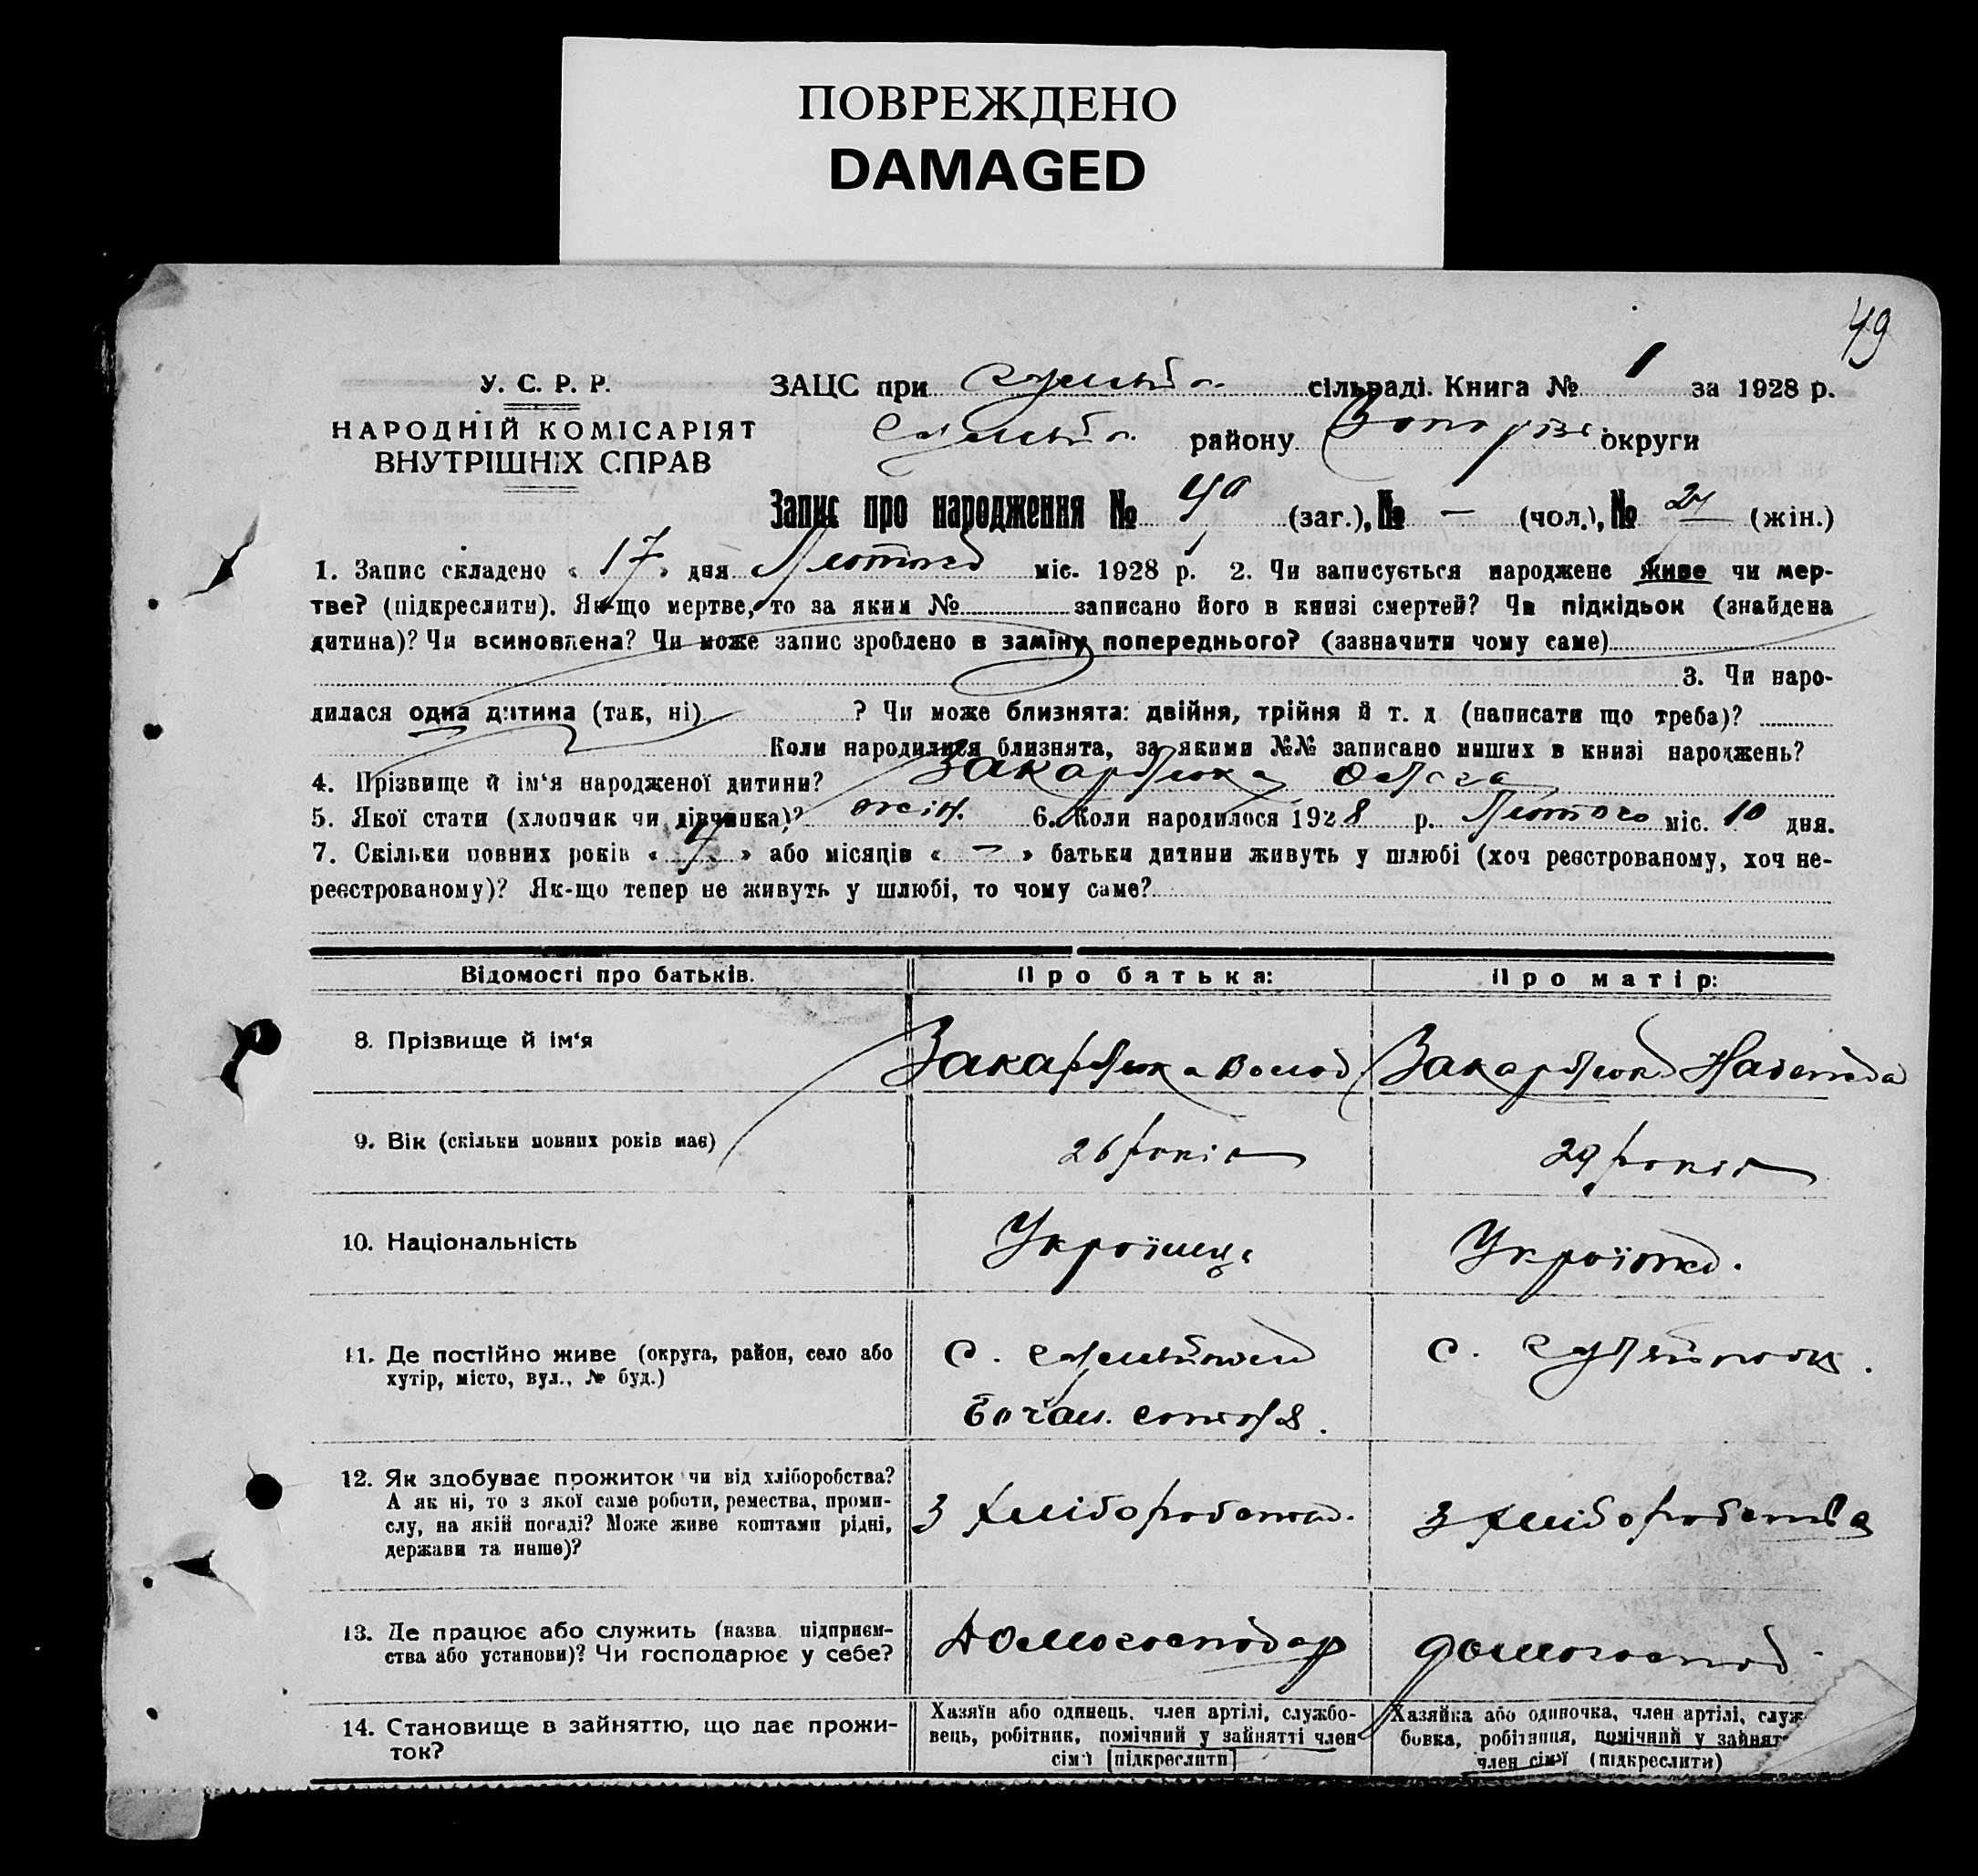 ПОВРЕЖДЕНО
DAMAGED
49
У. С. Р. Р.
НАРОДНІЙ КОМІСАРІЯТ
ВНУТРІШНІХ СПРАВ
ЗАЦС при сільраді. Книга № 1 за 1928 р.
району округи
Запис про народження № (заг.), № — (чол.), № (жін.)
1. Запис складено « 17 » дня Лютого міс. 1928 р. 2. Чи записується народжене живе чи мер-
тве? (підкреслити). Як-що мертве, то за яким № записано його в книзі смертей? Чи підкідьок (знайдена
дитина)? Чи всиновлена? Чи може запис зроблено в заміну попереднього? (зазначити чому саме)
3. Чи наро-
дилася одна дитина (так, ні) ? Чи може близнята: двійня, трійня й т. д. (написати що треба)?
Коли народилися близнята, за якими №№ записано инших в книзі народжень?
4. Прізвище й ім‘я народженої дитини?
5. Якої стати (хлопчик чи дівчинка)? жін. 6. Коли народилося 1928 р. Лютого міс. 10 дня.
7. Скільки повних років « 4 » або місяців « — » батьки дитини живуть у шлюбі (хоч реєстрованому, хоч не-
реєстрованому)? Як-що тепер не живуть у шлюбі, то чому саме?
Відомості про батьків. Про батька: Про матір:
8. Прізвище й ім‘я
9. Вік (скільки повних років має) 26 років 29 років
10. Національність Українець Українка.
11. Де постійно живе (округа, район, село або
хутір, місто, вул., № буд.)
с. с.
12. Як здобуває прожиток чи від хліборобства?
А як ні, то з якої саме роботи, ремества, проми-
слу, на якій посаді? Може живе коштами рідні,
держави та инше)?
З хліборобства. З хліборобства
13. Де працює або служить (назва підприєм-
ства або установи)? Чи господарює у себе?
Домогосподар домогоспод
14. Становище в зайняттю, що дає прожи-
ток?
Хазяїн або одинець, член артілі, службо-
вець, робітник, помічний у зайнятті член
сім‘ї [підкреслити]
Хазяйка або одиночка, член артілі, служ
бовка, робітниця, помічний у зайнят
член сім‘ї (підкреслити)